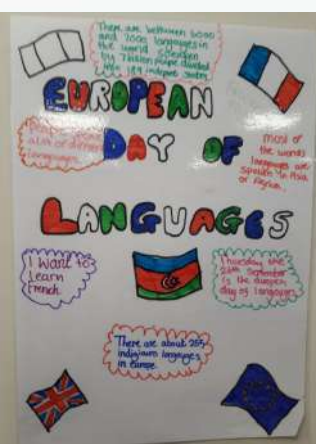 There are between 6000
and 7000 languages in
the world spoken
by 7 billion people divided
into 189 independent states
EUROPEAN
DAY OF
a lot of different
languages
most of
the worlds
languages are
spoken in Asia
or Africa.
LANGUAGES
I want to
learn
French.
Thursday the
26th September
is the
day of languages
There are about 225
indigenous languages
in europe.